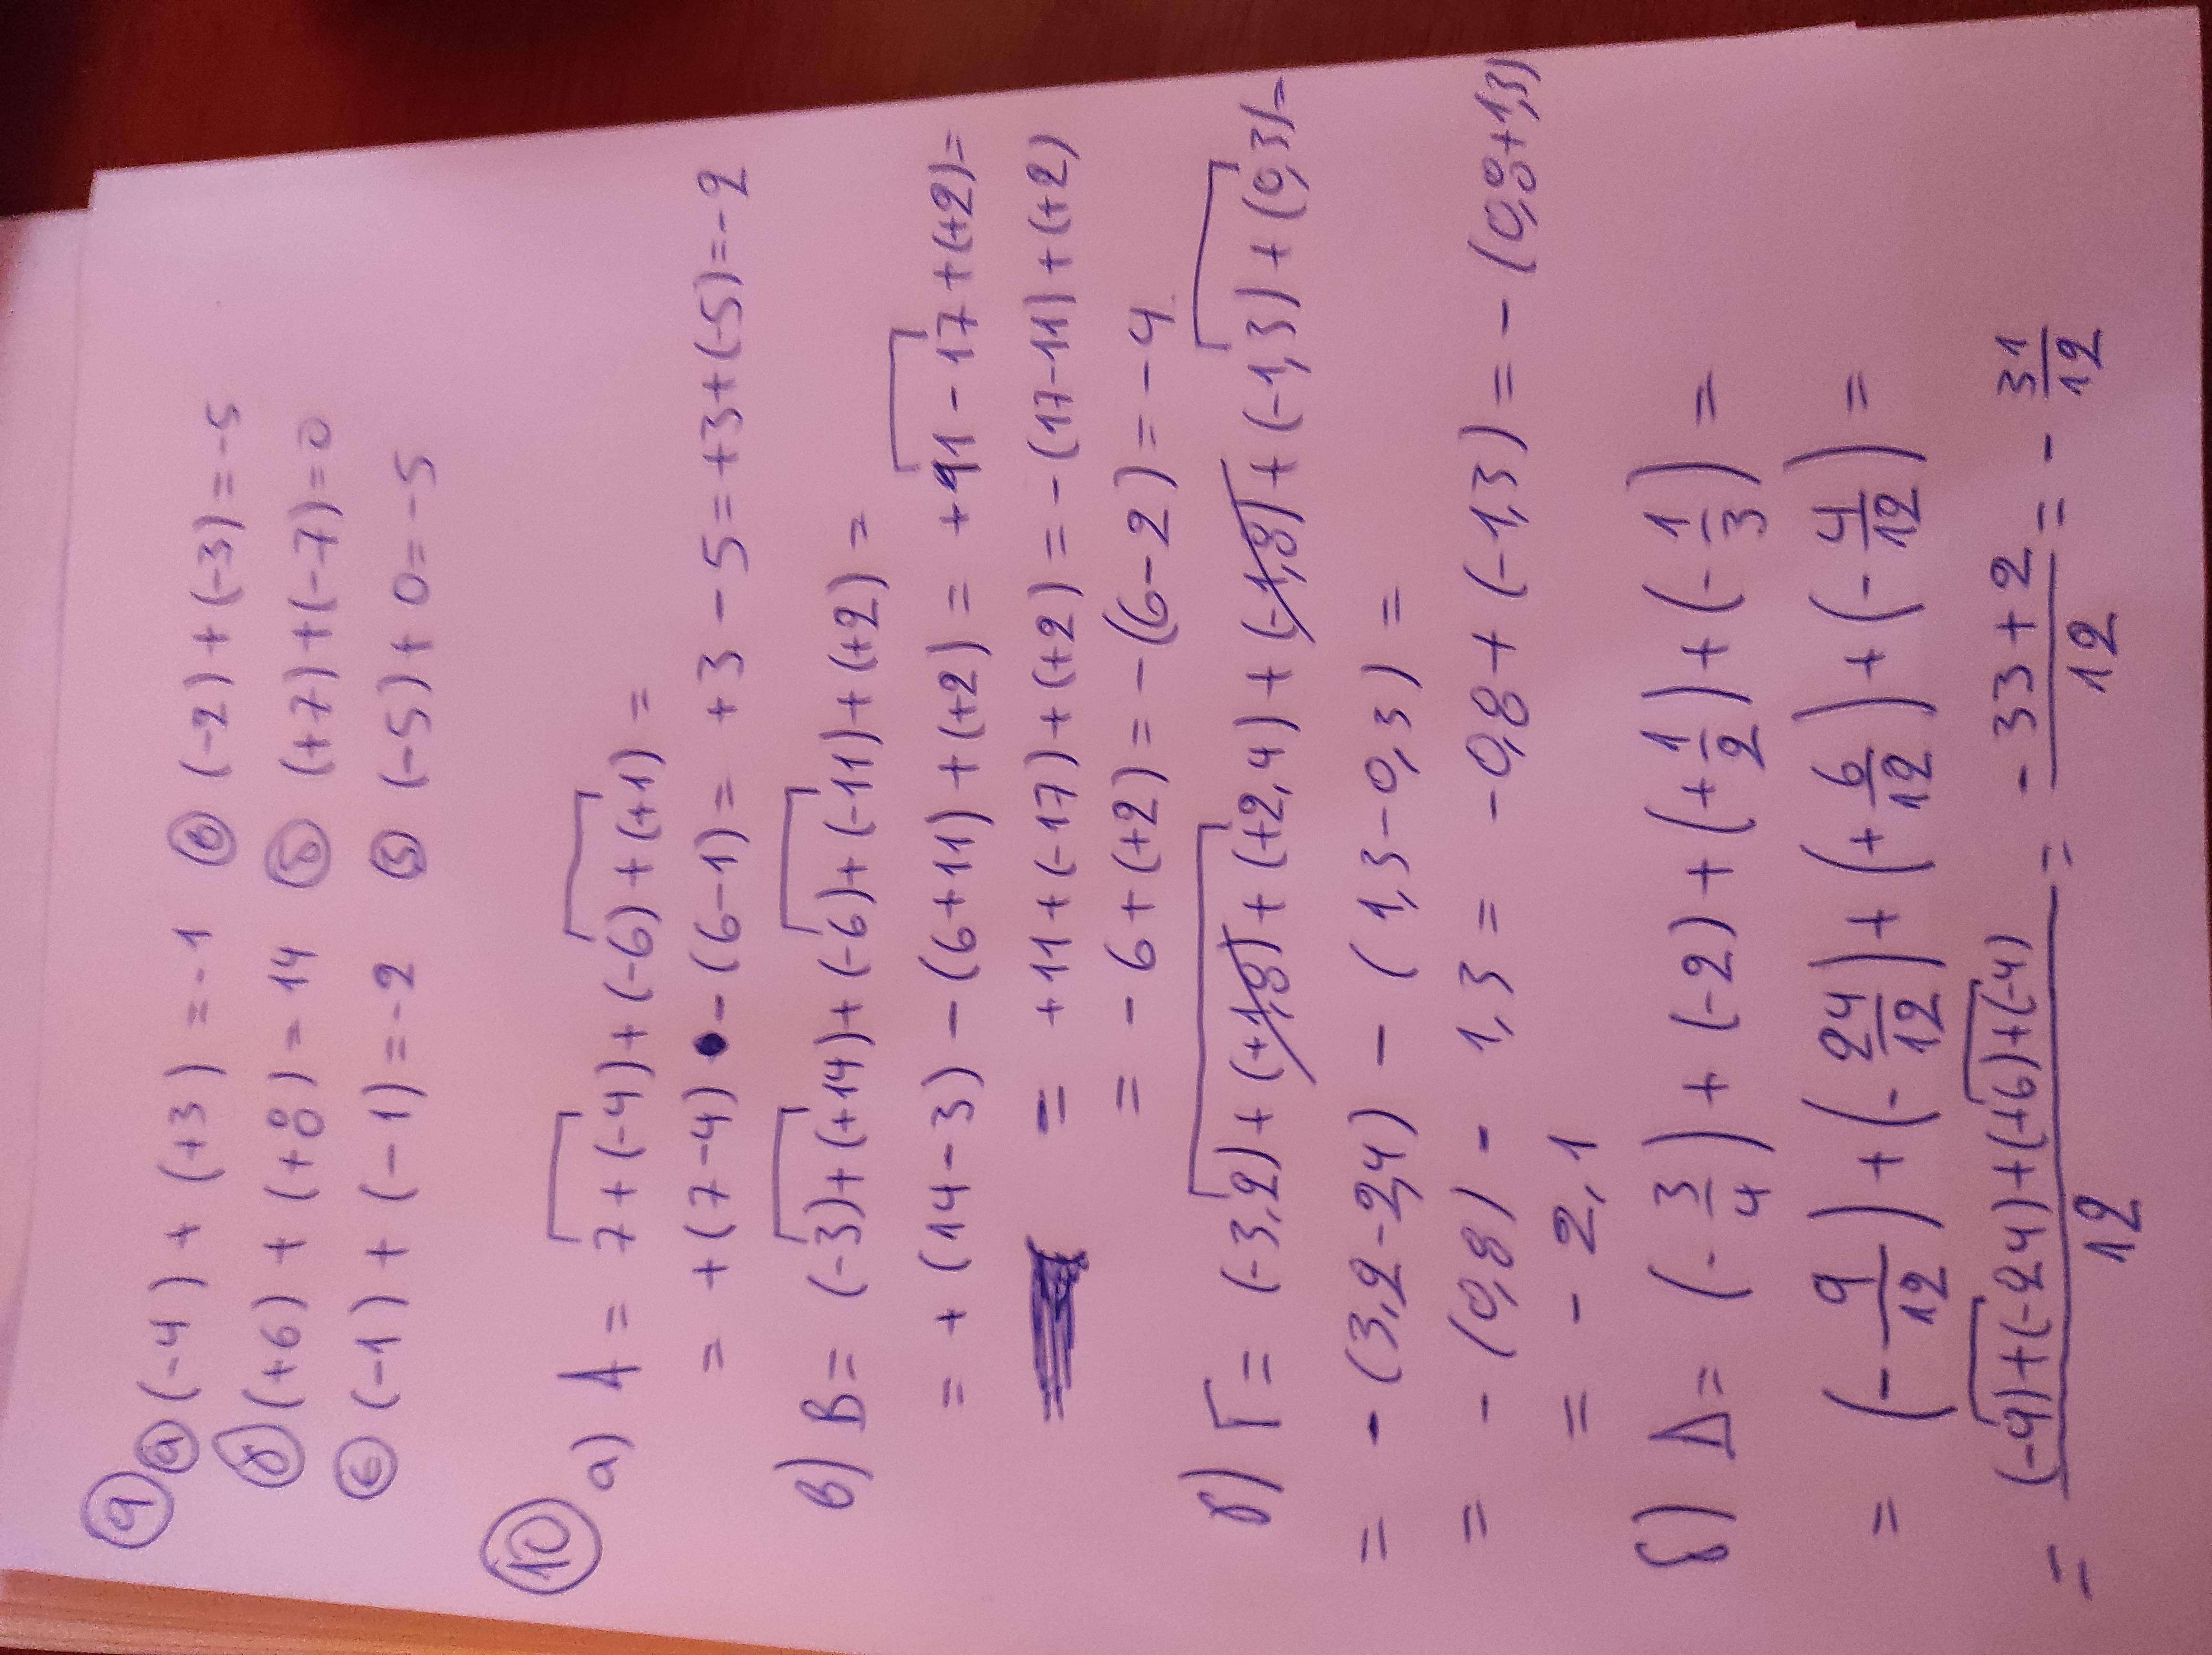 9 α (-4) + (+3) = -1 δ (-2) + (-3) = -5
β (+6) + (+8) = 14 ε (+7) + (-7) = 0
γ (-1) + (-1) = -2 στ (-5) + 0 = -5
10 α) A = 7+(-4)+(-6)+(+1) =
= +(7-4) - (6-1) = +3 - 5 = +3+(-5) = -2
β) B = (-3)+(+14)+(-6)+(-11)+(+2) =
= +(14-3) - (6+11) + (+2) = +11 - 17 + (+2) =
= +11+(-17)+(+2) = -(17-11)+(+2)
= -6+(+2) = -(6-2) = -4
γ) Γ = (-3,2)+(+1,8)+(+2,4)+(-1,8)+(-1,3)+(0,3) =
= -(3,2-2,4) - (1,3-0,3) =
= -(0,8) - 1,3 = -0,8+(-1,3) = -(0,8+1,3)
= -2,1
δ) Δ = (-3/4) + (-2) + (+1/2) + (-1/3) =
= (-9/12) + (-24/12) + (+6/12) + (-4/12) =
= (-9)+(-24)+(+6)+(-4)/12 = -33+2/12 = -31/12